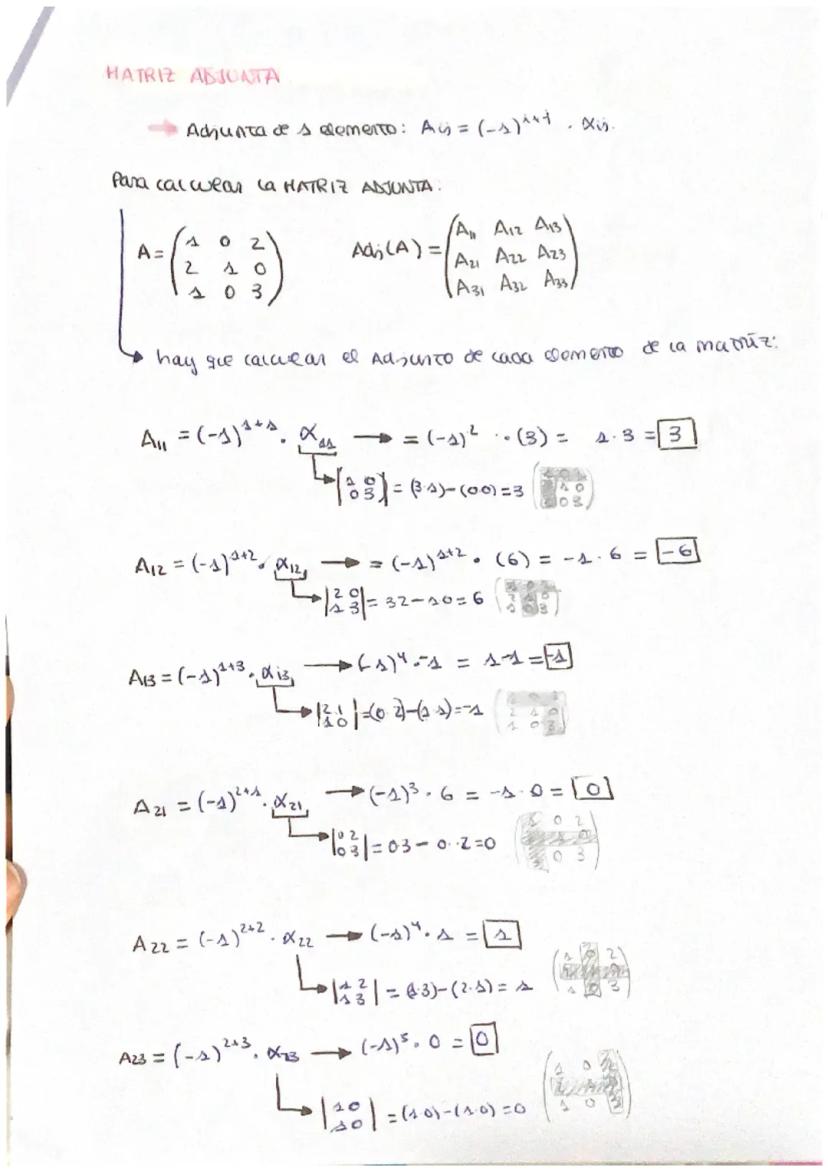 MATRIZ ADJUNTA
Adjunta de 1 elemento: Aij = (-1)^i+j . αij.
Para calcular la MATRIZ ADJUNTA:
A = (1 0 2 Adj(A) = (A11 A12 A13
2 1 0 A21 A22 A23
1 0 3) A31 A32 A33)
hay que calcular el Adjunto de cada elemento de la matriz:
A11 = (-1)^1+1 . α11 → = (-1)^2 · (3) = 1·3 = 3
|1 0
0 3| = (3·1)-(0·0)=3 (1 0 2
2 1 0
1 0 3)
A12 = (-1)^1+2 . α12, → = (-1)^1+2 · (6) = -1·6 = -6
|2 0
1 3| = 3·2-1·0=6
A13 = (-1)^1+3 . αi3, → (-1)^4 .-1 = 1·-1 = -1
|2 1
1 0| =(0·2)-(1·1)=-1 (1 0 2
2 1 0
1 0 3)
A21 = (-1)^2+1 . α21, → (-1)^3 · 6 = -1·0 = 0
|0 2
0 3| = 0·3 - 0·2=0 (1 0 2
2 1 0
1 0 3)
A22 = (-1)^2+2 · α22 → (-1)^4 · 1 = 1
|1 2
1 3| = (1·3)-(2·1) = 1 (1 0 2
1 0 3)
A23 = (-1)^2+3 . α23 → (-1)^5 . 0 = 0
|1 0
1 0| = (1·0)-(1·0)=0 (1 0 2
1 0 3)